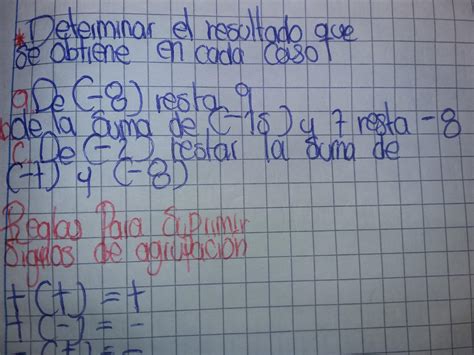 *Determinar el resultado que
se obtiene en cada caso
a De (-8) resta 9
b de la suma de (-15) y 7 resta -8
c De (-2) restar la suma de
(-7) y (-8)
Reglas Para Suprimir
Signos de agrupación
+ (+) = +
+ (-) = -
- (+) = -